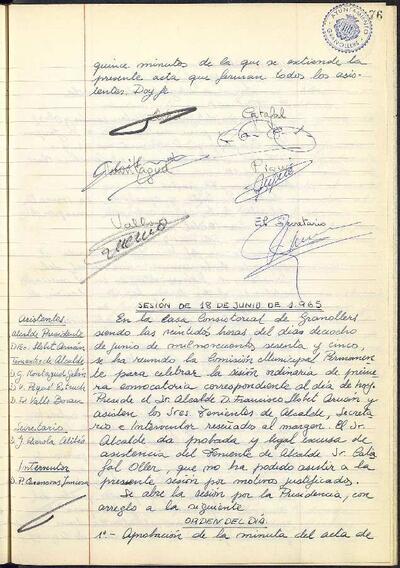 76
AYUNTAMIENTO
quince minutos de la que se extiende la
presente acta que firman todos los asis-
tentes. Doy fe
Catafal
Montagud
Piqué
Valls
El Secretario
SESIÓN DE 18 DE JUNIO DE 1.965
Asistentes
Alcalde Presidente
D. Fco. Llobet Arnán
Tenientes de Alcalde
D. G. Montagud
D. V. Piqué Estruch
D. Fd. Valls
Secretario
D. J.
Interventor
D. P. Casanovas
En la Casa Consistorial de Granollers
siendo las veintidos horas del dia dieciocho
de junio de mil novecientos sesenta y cinco,
se ha reunido la Comisión Municipal Permanen
te para celebrar la sesión ordinaria de prime
ra convocatoria correspondiente al dia de hoy.
Preside el Sr. Alcalde D. Francisco Llobet Arnán y
asisten los Sres. Tenientes de Alcalde, Secreta
rio e Interventor reseñados al margen. El Sr.
Alcalde da probada y legal excusa de
asistencia del Teniente de Alcalde Sr. Cata
fal Oller, que no ha podido asistir a la
presente sesión por motivos justificados.
Se abre la sesión por la Presidencia, con
arreglo a la siguiente
ORDEN DEL DIA.
1º.- Aprobación de la minuta del acta de